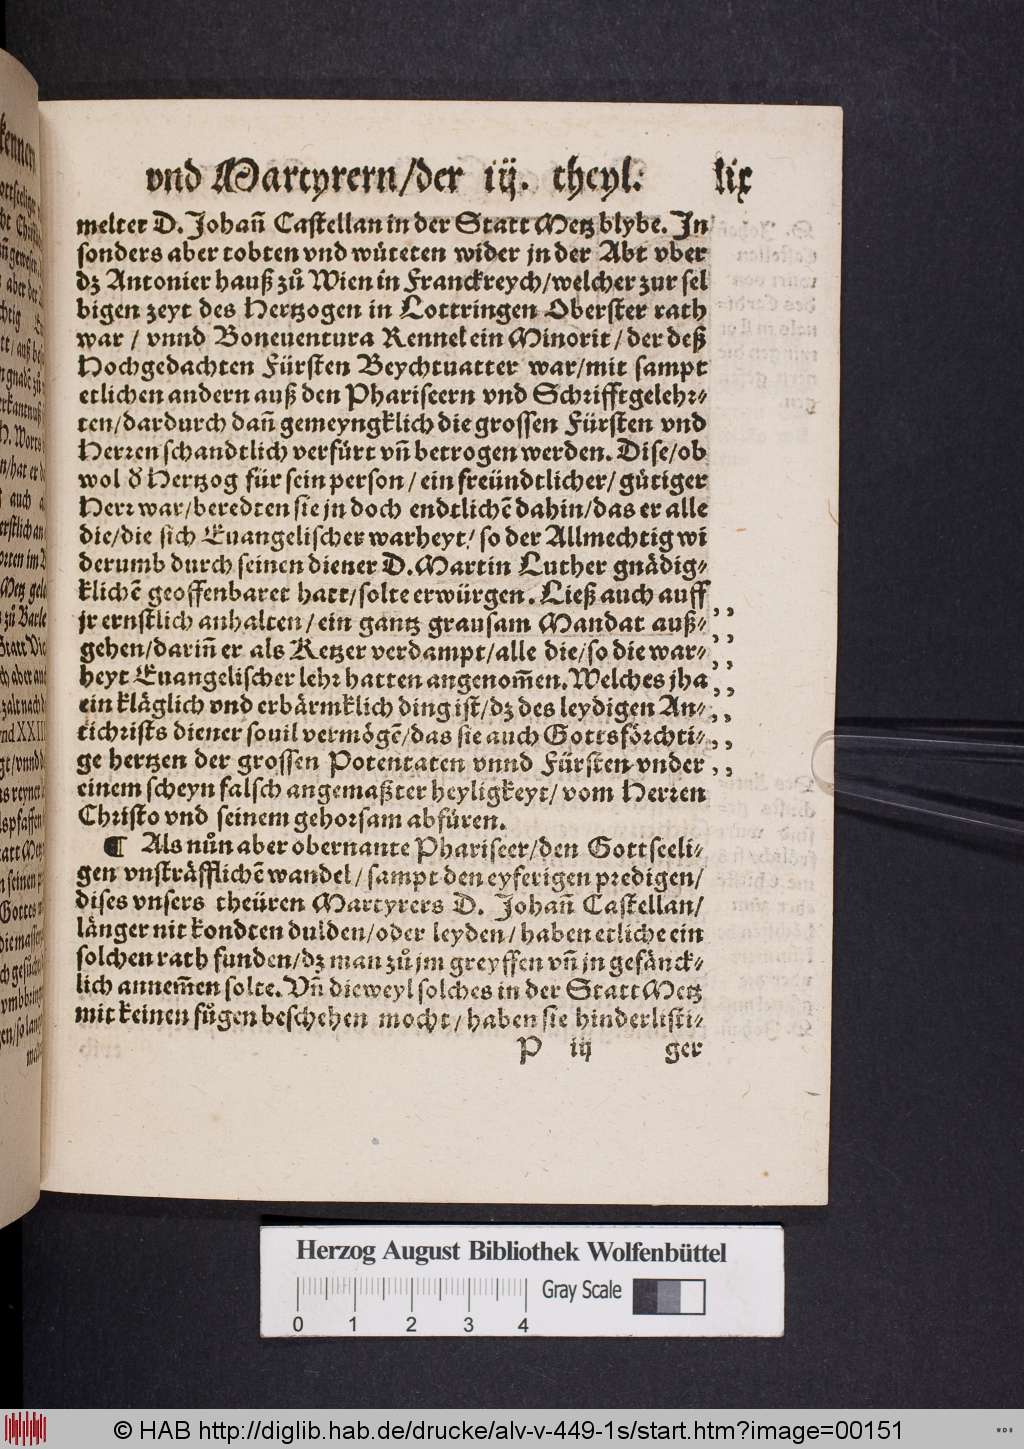 vnd Martyrern/der iij. theyl. lix
melter D. Johañ Castellan in der Statt Metz blybe. Jn
sonders aber tobten vnd wüteten wider jn der Abt vber
dz Antonier hauß zů Wien in Franckreych/welcher zur sel
bigen zeyt des Hertzogen in Lottringen Oberster rath
war / vnnd Boneuentura Rennel ein Minorit/der deß
Hochgedachten Fürsten Beychtuatter war/mit sampt
etlichen andern auß den Phariseern vnd Schrifftgelehr⸗
ten/dardurch dañ gemeyngklich die grossen Fürsten vnd
Herren schandtlich verfürt vñ betrogen werden. Dise/ob
wol d̕ Hertzog für sein person/ein freündtlicher/gütiger
Herr war/beredten sie jn doch endtlichẽ dahin/das er alle
die/die sich Euangelischer warheyt/so der Allmechtig wi
derumb durch seinen diener D. Martin Luther gnädig⸗
klichẽ geoffenbaret hatt/solte erwürgen. Ließ auch auff
jr ernstlich anhalten/ein gantz grausam Mandat auß⸗
gehen/dariñ er als Ketzer verdampt/alle die/so die war⸗
heyt Euangelischer lehr hatten angenom̃en. Welches jha
ein kläglich vnd erbärmklich ding ist/dz des leydigen An⸗
tichrists diener souil vermögẽ/das sie auch Gottsförchti⸗
ge hertzen der grossen Potentaten vnnd Fürsten vnder
einem scheyn falsch angemaßter heyligkeyt/vom Herren
Christo vnd seinem gehorsam abfüren.
¶ Als nůn aber obernante Phariseer/den Gottseeli⸗
gen vnsträfflichẽ wandel/sampt den eyferigen predigen/
dises vnsers theüren Martyrers D. Johañ Castellan/
länger nit kondten dulden/oder leyden/haben etliche ein
solchen rath funden/dz man zů jm greyffen vñ jn gefänck⸗
lich annem̃en solte. Vñ dieweyl solches in der Statt Metz
mit keinen fůgen beschehen mocht/haben sie hinderlisti⸗
P iij ger
Herzog August Bibliothek Wolfenbüttel
Gray Scale
0 1 2 3 4
© HAB http://diglib.hab.de/drucke/alv-v-449-1s/start.htm?image=00151